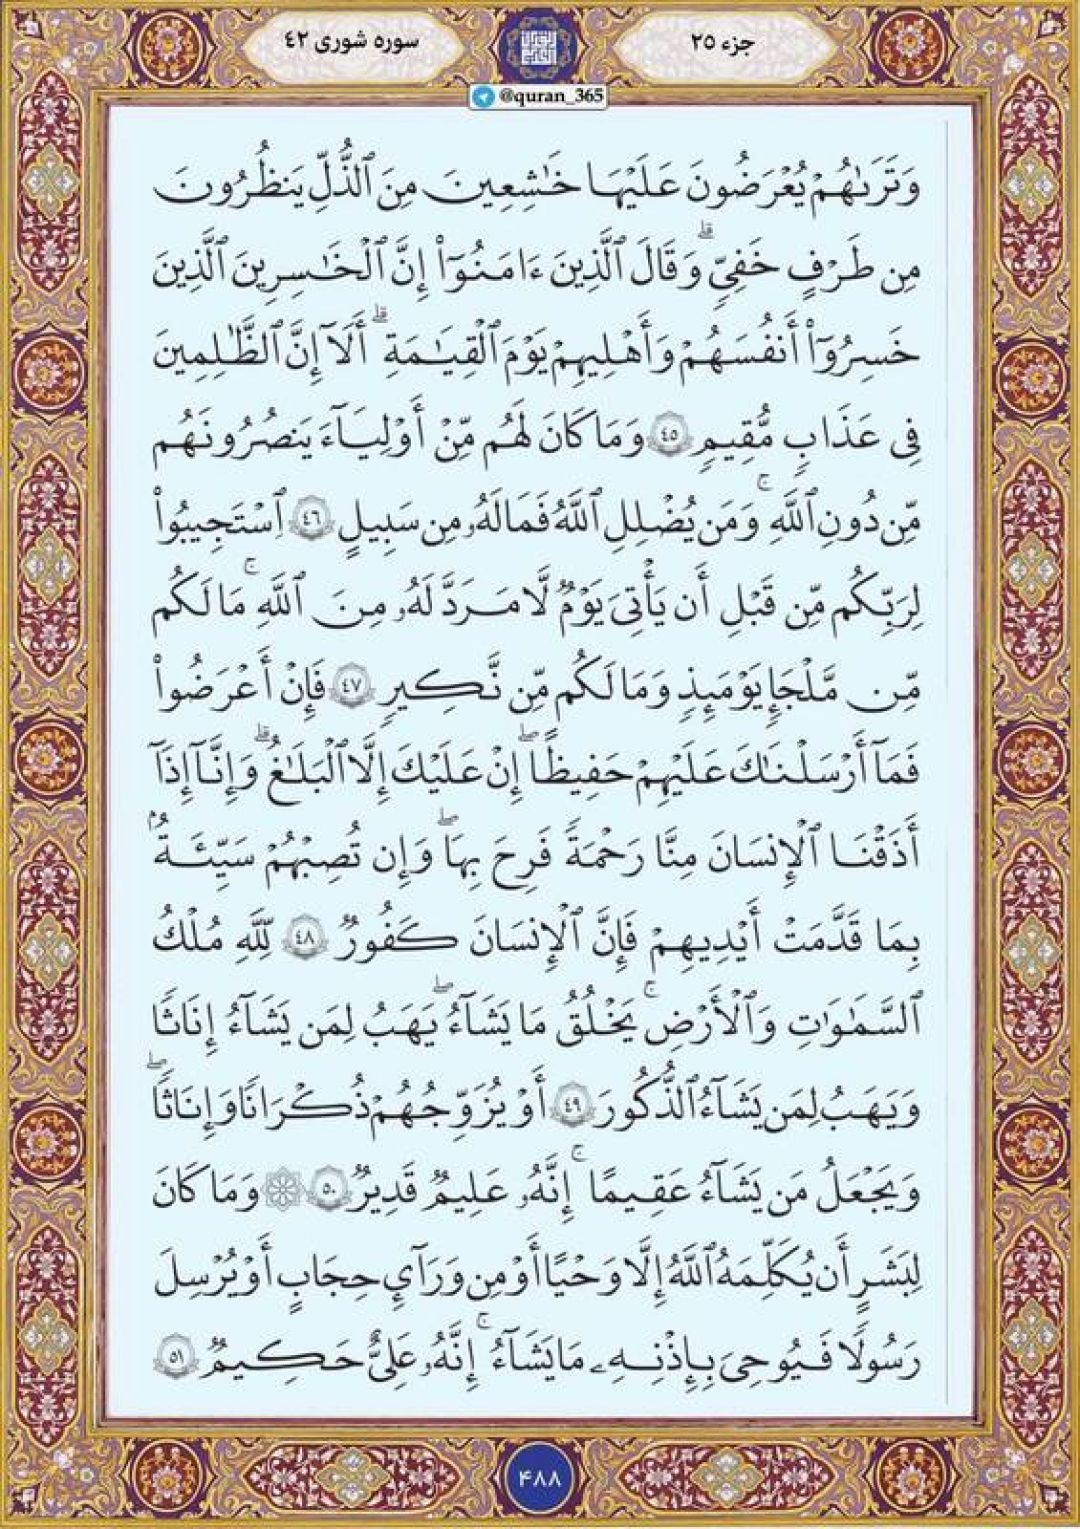 جزء ۲۵
سوره شوری ۴۲
@quran_365
وَتَرَىٰهُمْ يُعْرَضُونَ عَلَيْهَا خَٰشِعِينَ مِنَ ٱلذُّلِّ يَنظُرُونَ
مِن طَرْفٍ خَفِيٍّ ۗ وَقَالَ ٱلَّذِينَ ءَامَنُوٓا۟ إِنَّ ٱلْخَٰسِرِينَ ٱلَّذِينَ
خَسِرُوٓا۟ أَنفُسَهُمْ وَأَهْلِيهِمْ يَوْمَ ٱلْقِيَٰمَةِ ۗ أَلَآ إِنَّ ٱلظَّٰلِمِينَ
فِى عَذَابٍ مُّقِيمٍ ٤٥ وَمَا كَانَ لَهُم مِّنْ أَوْلِيَآءَ يَنصُرُونَهُم
مِّن دُونِ ٱللَّهِ ۗ وَمَن يُضْلِلِ ٱللَّهُ فَمَا لَهُۥ مِن سَبِيلٍ ٤٦ ٱسْتَجِيبُوا۟
لِرَبِّكُم مِّن قَبْلِ أَن يَأْتِىَ يَوْمٌ لَّا مَرَدَّ لَهُۥ مِنَ ٱللَّهِ ۚ مَا لَكُم
مِّن مَّلْجَإٍ يَوْمَئِذٍ وَمَا لَكُم مِّن نَّكِيرٍ ٤٧ فَإِنْ أَعْرَضُوا۟
فَمَآ أَرْسَلْنَٰكَ عَلَيْهِمْ حَفِيظًا ۖ إِنْ عَلَيْكَ إِلَّا ٱلْبَلَٰغُ ۗ وَإِنَّآ إِذَآ
أَذَقْنَا ٱلْإِنسَٰنَ مِنَّا رَحْمَةً فَرِحَ بِهَا ۖ وَإِن تُصِبْهُمْ سَيِّئَةٌۢ
بِمَا قَدَّمَتْ أَيْدِيهِمْ فَإِنَّ ٱلْإِنسَٰنَ كَفُورٌ ٤٨ لِّلَّهِ مُلْكُ
ٱلسَّمَٰوَٰتِ وَٱلْأَرْضِ ۚ يَخْلُقُ مَا يَشَآءُ ۖ يَهَبُ لِمَن يَشَآءُ إِنَٰثًا
وَيَهَبُ لِمَن يَشَآءُ ٱلذُّكُورَ ٤٩ أَوْ يُزَوِّجُهُمْ ذُكْرَانًا وَإِنَٰثًا ۖ
وَيَجْعَلُ مَن يَشَآءُ عَقِيمًا ۚ إِنَّهُۥ عَلِيمٌ قَدِيرٌ ٥٠ ۞ وَمَا كَانَ
لِبَشَرٍ أَن يُكَلِّمَهُ ٱللَّهُ إِلَّا وَحْيًا أَوْ مِن وَرَآئِ حِجَابٍ أَوْ يُرْسِلَ
رَسُولًا فَيُوحِىَ بِإِذْنِهِۦ مَا يَشَآءُ ۚ إِنَّهُۥ عَلِىٌّ حَكِيمٌ ٥١
۴۸۸